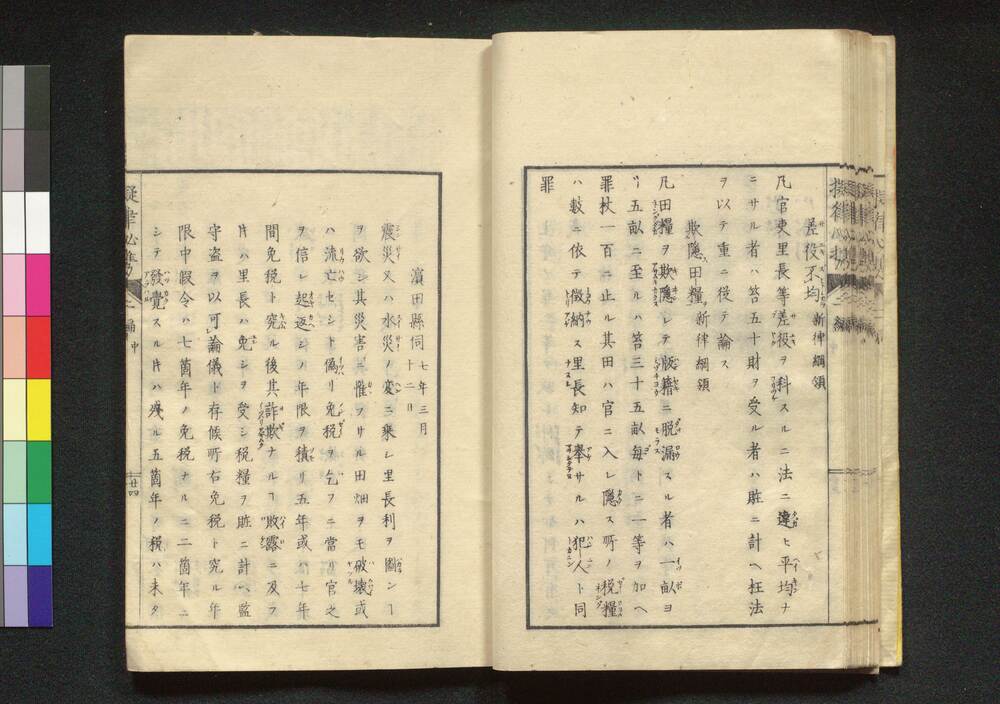 差役不均 新律綱領
凡官吏里長等差役ヲ科スルニ法ニ違ヒ平均ナ
ニサル者ハ笞五十財ヲ受ル者ハ賍ニ計ヘ枉法
ヲ以テ重ニ従テ論ス
欺隠田糧 新律綱領
凡田糧ヲ欺隠シテ版籍ニ脱漏スル者ハ一畝ヨ
リ五畝ニ至ルハ笞三十五畝毎トニ一等ヲ加ヘ
罪杖一百ニ止ル其田ハ官ニ入レ隠ス所ノ税糧
ハ數ニ依テ徴納ス里長知テ擧サルハ犯人ト同
罪
濵田縣伺 七年三月十二日
震災又ハ水災ノ変ニ乗シ里長利ヲ圖ンヿ
ヲ欲シ其災害ニ惟フサル田畑ヲモ破壊或
ハ流亡セシト偽リ免税ヲ乞フニ當リ官之
ヲ信シ起返シノ年限ヲ積リ五年或ハ七年
間免税ト究ル後其詐欺ナルヿ敗露ニ及フ
片ハ里長ハ免シヲ受シ税糧ヲ賍ニ計ヘ監
守盗ヲ以可論儀ト存候所右免税ト究ル年
限中假令ハ七箇年ノ免税ナルニ二箇年ニ
シテ發覺スル片ハ残ル五箇年ノ税ハ未タ
擬律必携 二編中
廿四